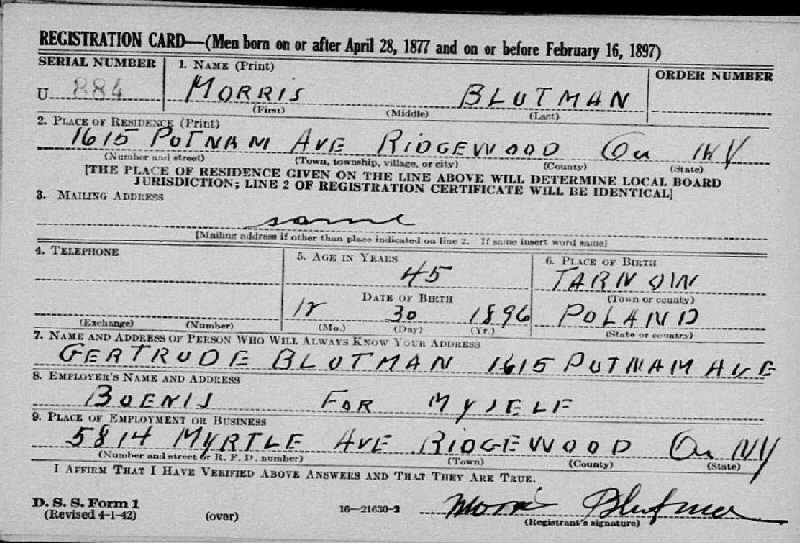 REGISTRATION CARD—(Men born on or after April 28, 1877 and on or before February 16, 1897)
SERIAL NUMBER 1. NAME (Print) ORDER NUMBER
U 884 MORRIS BLUTMAN
(First) (Middle) (Last)
2. PLACE OF RESIDENCE (Print)
1615 PUTNAM AVE RIDGEWOOD Qu NY
(Number and street) (Town, township, village, or city) (County) (State)
[THE PLACE OF RESIDENCE GIVEN ON THE LINE ABOVE WILL DETERMINE LOCAL BOARD
JURISDICTION; LINE 2 OF REGISTRATION CERTIFICATE WILL BE IDENTICAL]
3. MAILING ADDRESS
same
[Mailing address if other than place indicated on line 2. If same insert word same]
4. TELEPHONE 5. AGE IN YEARS 6. PLACE OF BIRTH
45 TARNOW
DATE OF BIRTH (Town or county)
12 30 1896 POLAND
(Exchange) (Number) (Mo.) (Day) (Yr.) (State or country)
7. NAME AND ADDRESS OF PERSON WHO WILL ALWAYS KNOW YOUR ADDRESS
GERTRUDE BLUTMAN 1615 PUTNAM AVE
8. EMPLOYER'S NAME AND ADDRESS
FOR MYSELF
9. PLACE OF EMPLOYMENT OR BUSINESS
5814 MYRTLE AVE RIDGEWOOD Qu NY
(Number and street or R. F. D. number) (Town) (County) (State)
I AFFIRM THAT I HAVE VERIFIED ABOVE ANSWERS AND THAT THEY ARE TRUE.
D. S. S. Form 1
(Revised 4-1-42) (over) 16—21630-2 Morris Blutman
(Registrant's signature)